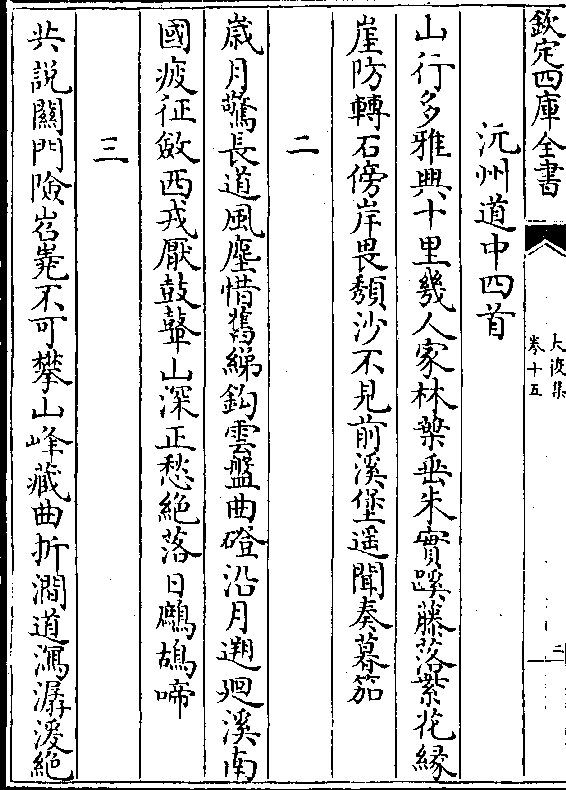 欽定四庫全書
大復集
卷十五
二
沅州道中四首
山行多雅興十里幾人家林葉垂朱實蹊藤落紫花緣
崖防轉石傍岸畏頽沙不見前溪堡遥聞奏暮笳
二
歳月驚長道風塵惜舊綈鈎雲盤曲磴沿月遡廻溪南
國疲征斂西戎厭鼓鼙山深正愁絶落日鷓鴣啼
三
共說關門險岧嶤不可攀山峰藏曲折澗道瀉潺湲絶